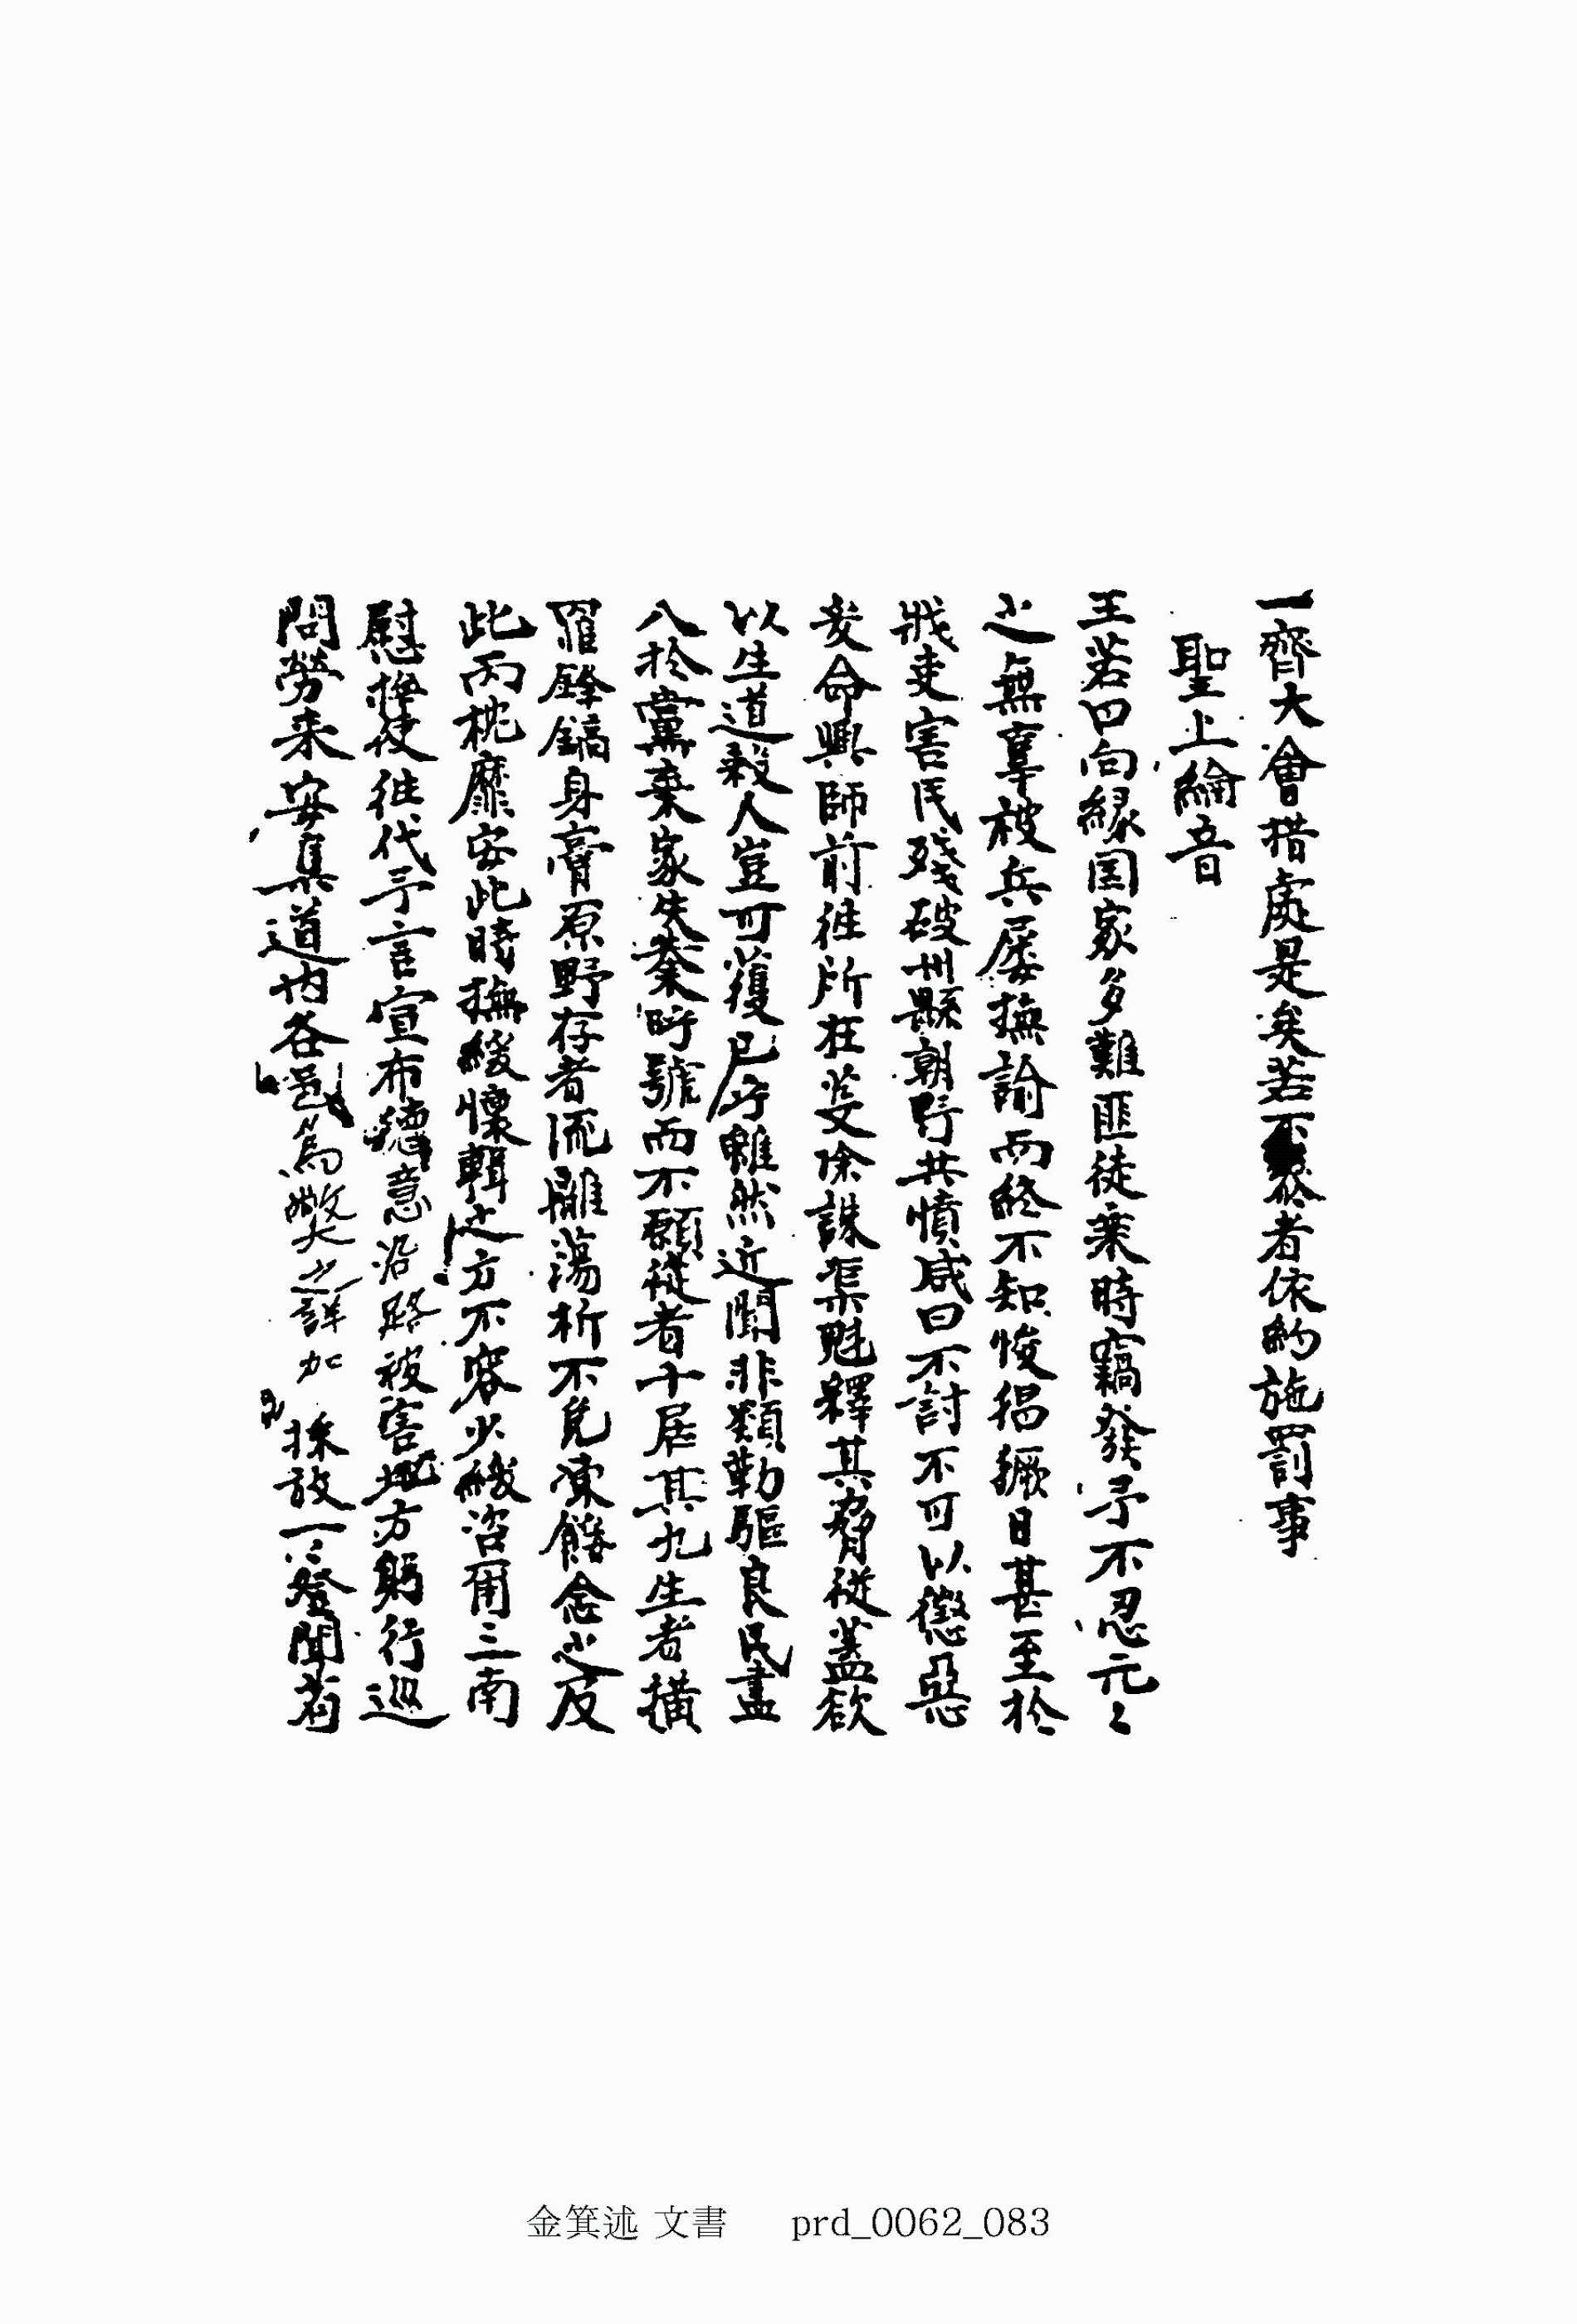 一齊大會措處是矣若不爲㳟者依約施罰事
聖上綸音
王若曰向緣国家多難匪徒乘時竊發予不忍元〻
之無辜被兵屢撫諭而終不知悛猖獗日甚至於
戕吏害民殘破州縣朝野共憤咸曰不討不可以懲惡
爰命興師前徃所在芟除誅渠魁釋其脅從蓋欲
以生道殺人豈可獲已乎雖然近聞非類勒驅良民盡
入於黨棄家失業呼號而不願從者十居其九生者橫
罹鋒鏑身膏原野存者流離蕩析不免凍餒念之及
此丙枕靡安此時撫綏懷輯之方不容少緩咨爾三南
慰撫使徃代予言宣布德意沿路被害地方躬行巡
問勞来安集道内各邑爲獘之詳加採放一〻登聞着
金箕述 文書 prd_0062_083